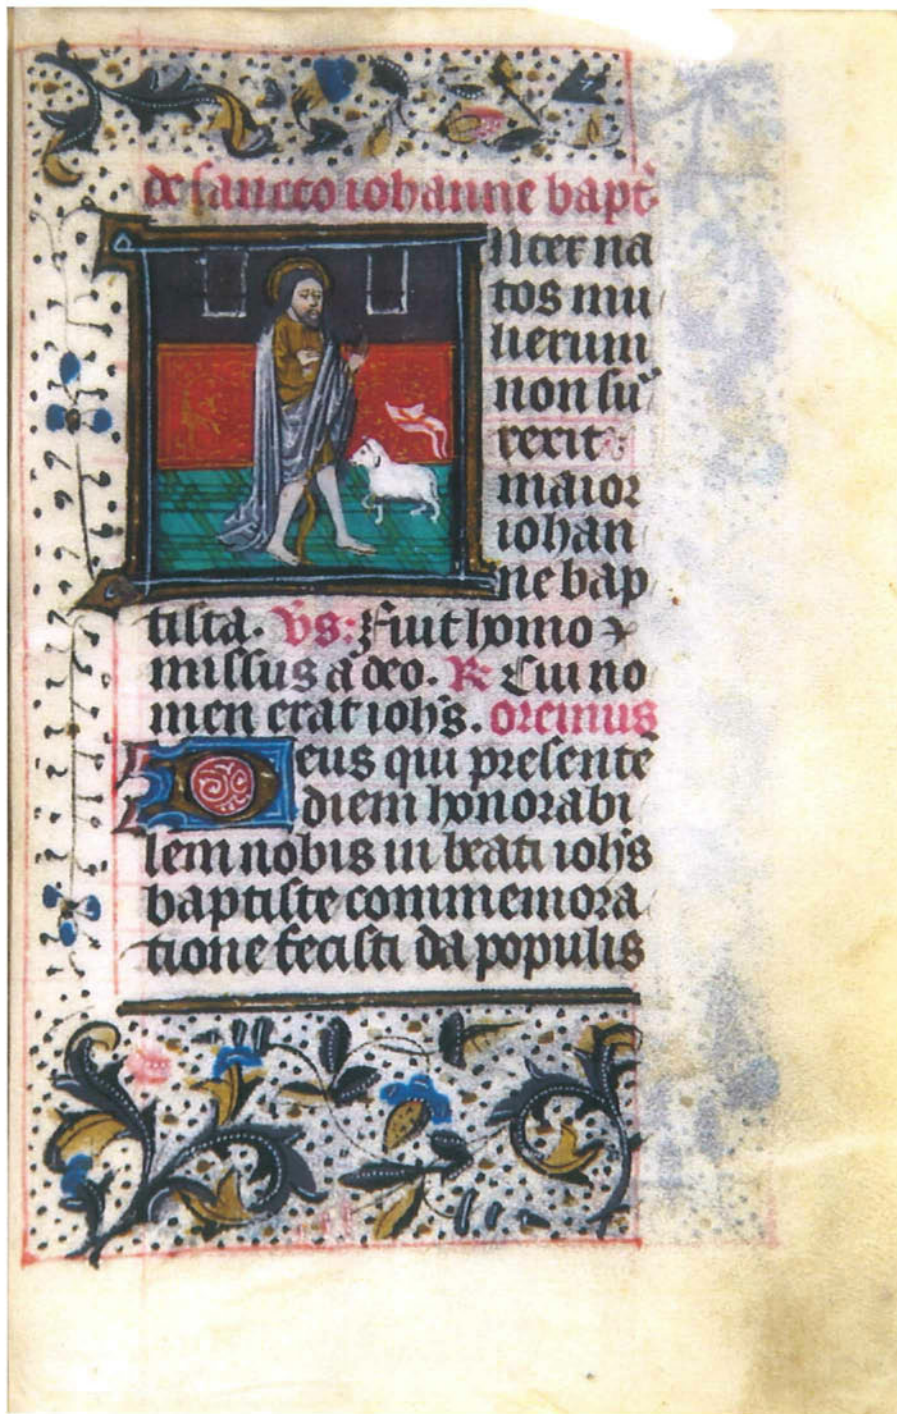 de sancto iohanne bapt̄
Nter na
tos mu
lierum
non su
rexit
maior
iohan
ne bap
tista. V̄s: Fuit homo
missus a deo. R̄ Cui no
men erat ioh̄s. oremus
Deus qui presentē
diem honorabi
lem nobis in beati ioh̄s
baptiste commemora
tione fecisti da populis